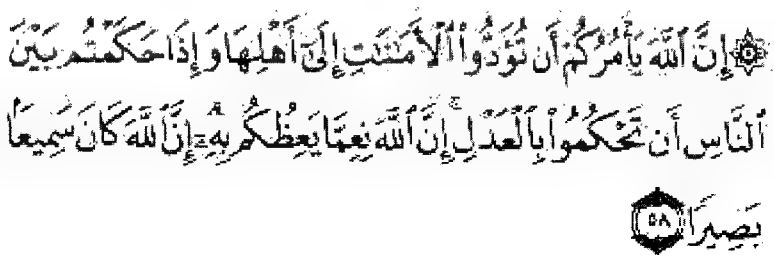 ۞ إِنَّ ٱللَّهَ يَأْمُرُكُمْ أَن تُؤَدُّوا۟ ٱلْأَمَٰنَٰتِ إِلَىٰٓ أَهْلِهَا وَإِذَا حَكَمْتُم بَيْنَ
ٱلنَّاسِ أَن تَحْكُمُوا۟ بِٱلْعَدْلِ ۚ إِنَّ ٱللَّهَ نِعِمَّا يَعِظُكُم بِهِۦٓ ۗ إِنَّ ٱللَّهَ كَانَ سَمِيعًۢا
بَصِيرًا ٥٨